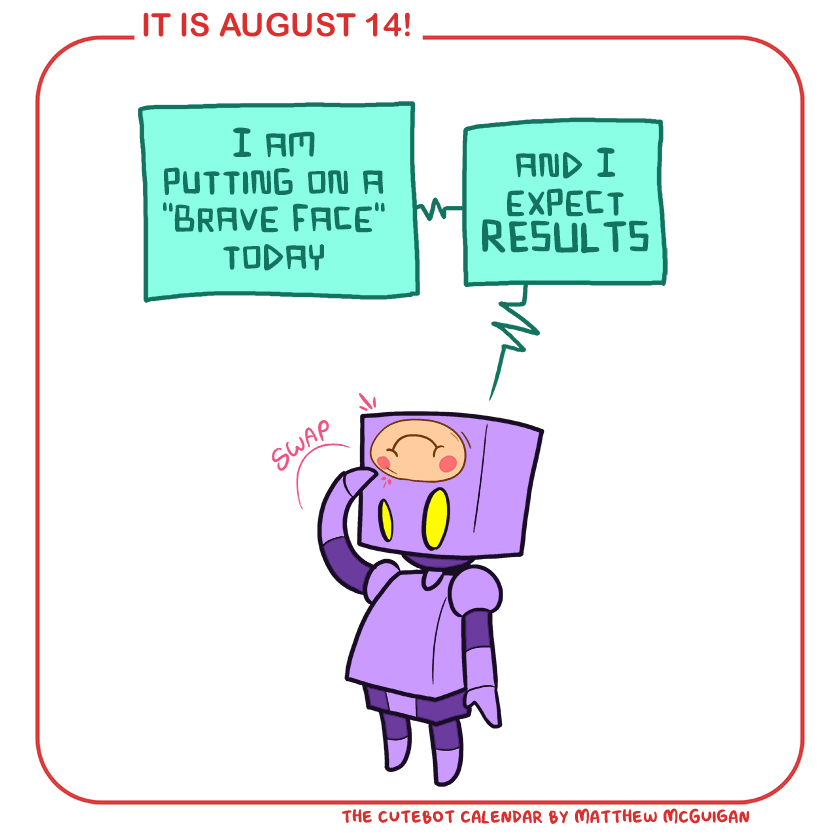 IT IS AUGUST 14!
I AM
PUTTING ON A
"BRAVE FACE"
TODAY
AND I
EXPECT
RESULTS
SWAP
THE CUTEBOT CALENDAR BY MATTHEW MCGUIGAN